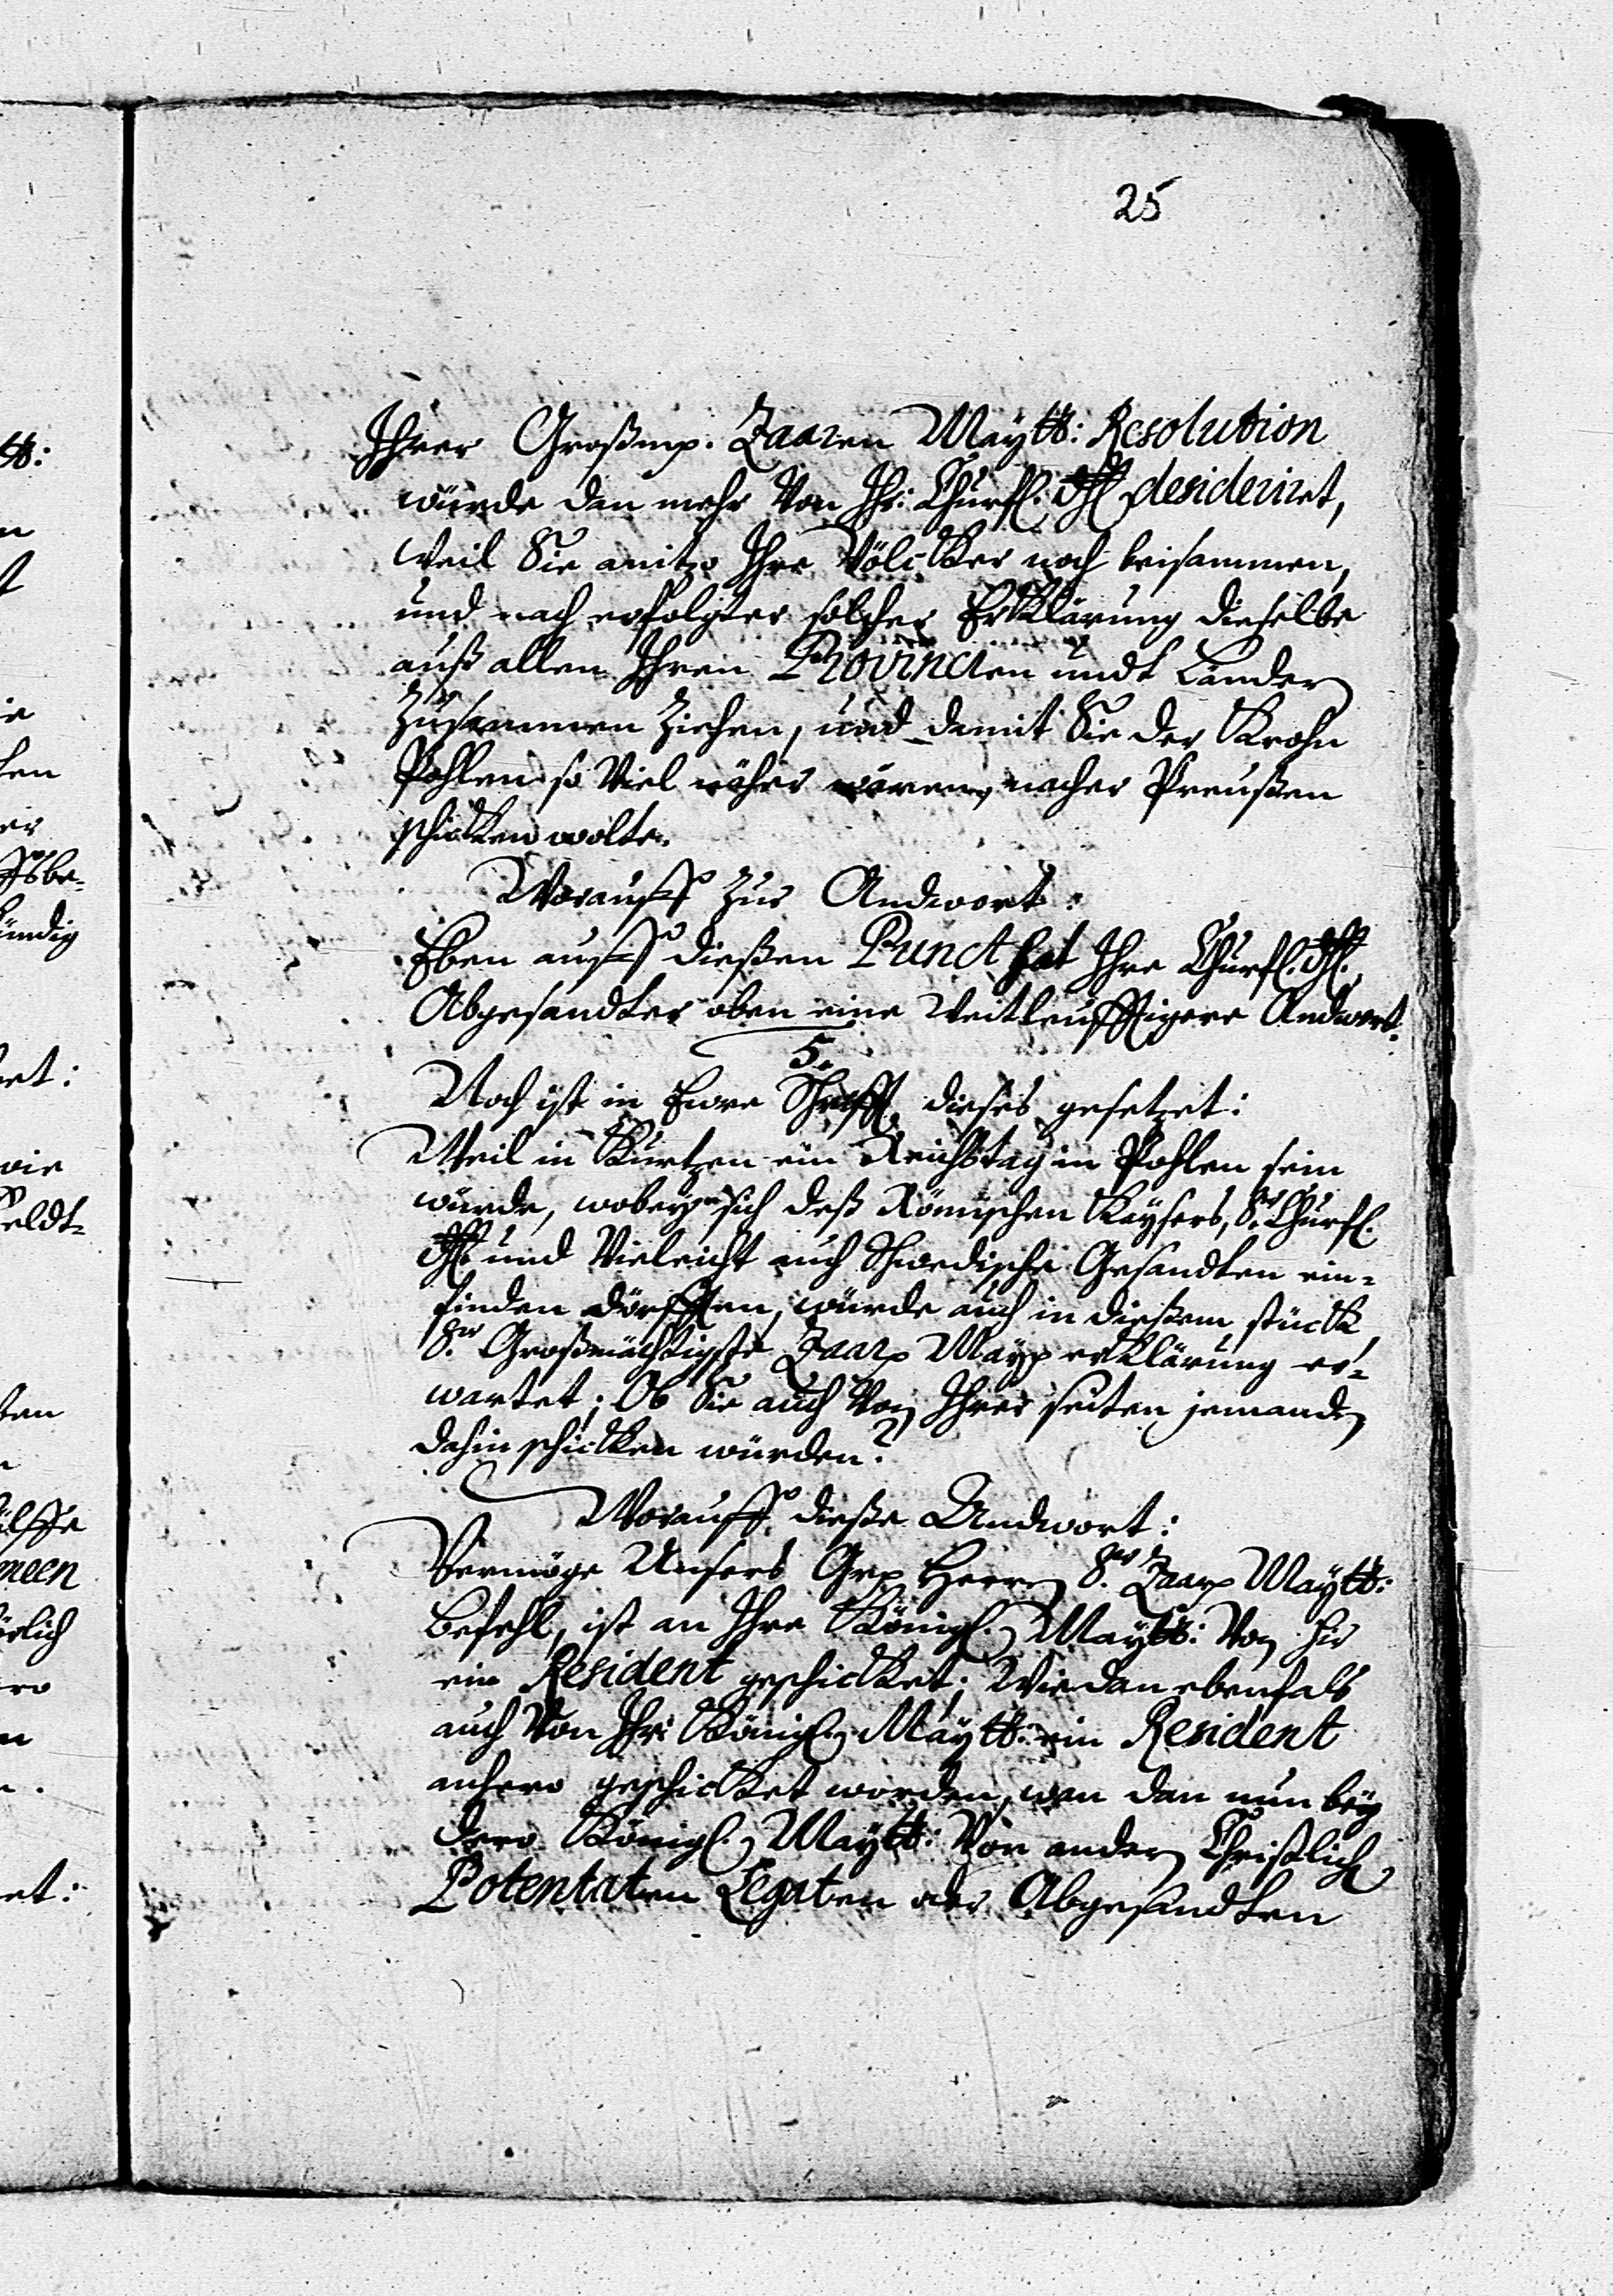 25
Ihrer Großmp. Zaaren Maytt: Resolution
würde dan mehr Von Ihr: Churfl. Dhl desideriret,
weil Sie anitzo Ihre Völcker noch beisammen,
und nach erfolgter solcher Erklärung dieselbe
auß allen Ihren Provincien undt Länder
Zusammen Ziehen, und damit Sie der Krohn
Pohlen so Viel näher wären, nacher Preußen
schicken wolte.
Worauff zur Andwort:
Eben auff dießen Punct hat Ihre Churfl. Dhl.
Abgesandter oben eine Weitleufftigere Andwort.
5.
Noch ist in Ewre Schrifft dieses gesetzet:
Weil in Kurtzen ein Reichstag in Pohlen sein
würde, wobey sich deß Römischen Kaysers, Sr. Churfl.
Dhl. und Vieleicht auch Schwedische Gesandten ein-
finden dörfften, würde auch in dießem stück
Sr. Großmächtigste Zaarp Mayp erklärung er-
wartet; Ob Sie auch Von Ihrer seiten jemanden
dahin schicken würden?
Worauff dieße Andwort:
Vermöge Unsers Grp Herrn Sr. Zaarp Maytt:
befehl, ist an Ihre Königl. Maytt: Von hir
ein Resident geschicket; Wie dan ebenfals
auch Von Ihr: Königl. Maytt: ein Resident
anhero geschicket worden, wan dan nun bey
dero Königl. Maytt: Von andern Christlich
Potentaten Legaten oder Abgesandten